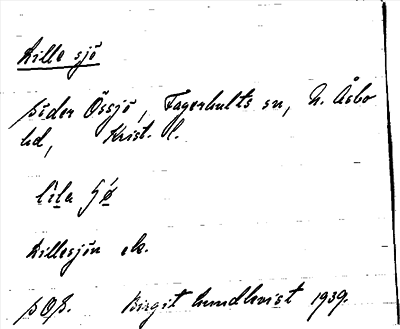 Lille sjö
Söder Össjö, Fagerhults sn, N. Åsbo
hd, Krist. l.
lìla ʃǿ
Lillesjön ek.
Birgit Lundkvist 1939.